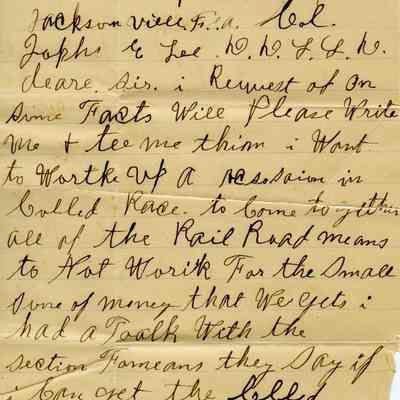 Jacksonville Fla. Col.
Jophs E Lee. D. D. L. L. D.
deare. Sir. i Request of on
Some Facts Will Please Write
Me & tee me thim i Want
to Wortke Up A in
Colled Race. to Come to gether
all of the Rail Road means
to Not Woritk For the Small
Sone of money that We gets i
had a Toalk With the
section Fomeans they Say if
i Can get the Colled